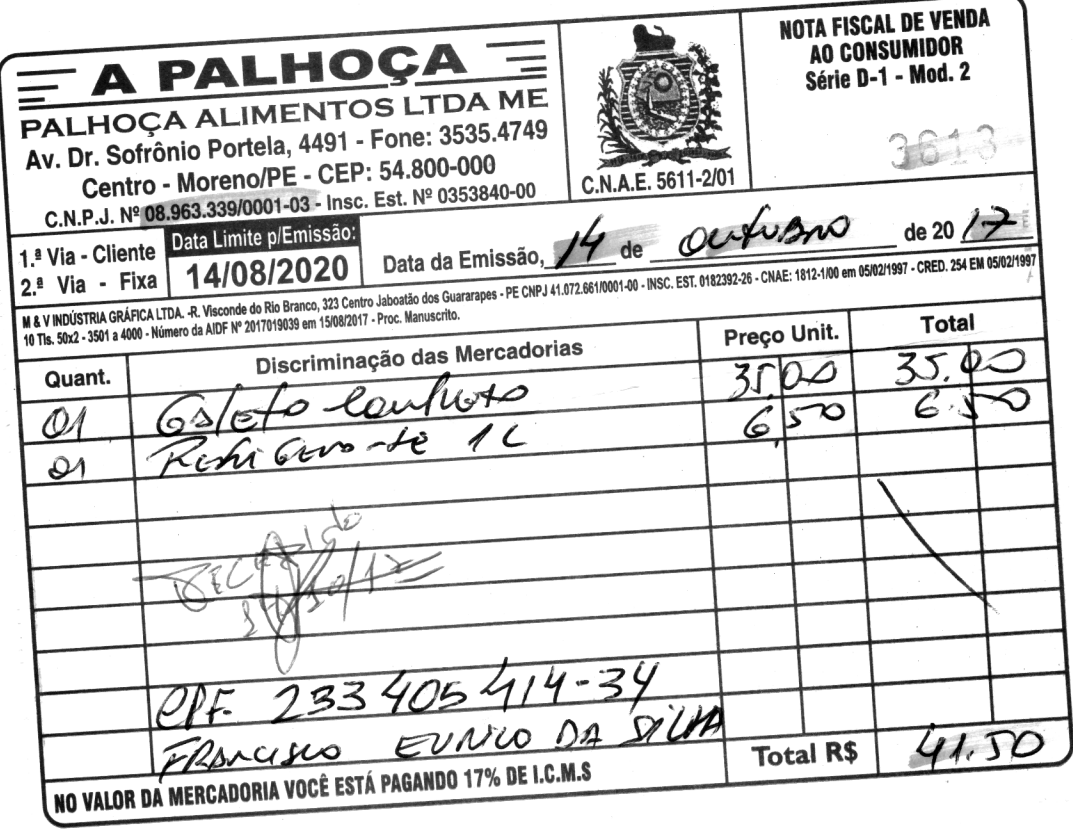 A PALHOÇA
PALHOÇA ALIMENTOS LTDA ME
Av. Dr. Sofrônio Portela, 4491 - Fone: 3535.4749
Centro - Moreno/PE - CEP: 54.800-000
C.N.P.J. Nº 08.963.339/0001-03 - Insc. Est. Nº 0353840-00
C.N.A.E. 5611-2/01
NOTA FISCAL DE VENDA
AO CONSUMIDOR
Série D-1 - Mod. 2
3613
1.ª Via - Cliente
2.ª Via - Fixa
Data Limite p/Emissão:
14/08/2020
Data da Emissão, 14 de outubro de 20 17
M & V INDÚSTRIA GRÁFICA LTDA. -R. Visconde do Rio Branco, 323 Centro Jaboatão dos Guararapes - PE CNPJ 41.072.661/0001-00 - INSC. EST. 0182392-26 - CNAE: 1812-1/00 em 05/02/1997 - CRED. 254 EM 05/02/1997
10 Tls. 50x2 - 3501 a 4000 - Número da AIDF Nº 2017019039 em 15/08/2017 - Proc. Manuscrito.
Quant. Discriminação das Mercadorias Preço Unit. Total
01 Galeto completo 35,00 35,00
01 Refrigerante 1L 6,50 6,50
CPF. 233 405 414-34
FRANCISCO EUNICO DA SILVA
Total R$ 41.50
NO VALOR DA MERCADORIA VOCÊ ESTÁ PAGANDO 17% DE I.C.M.S